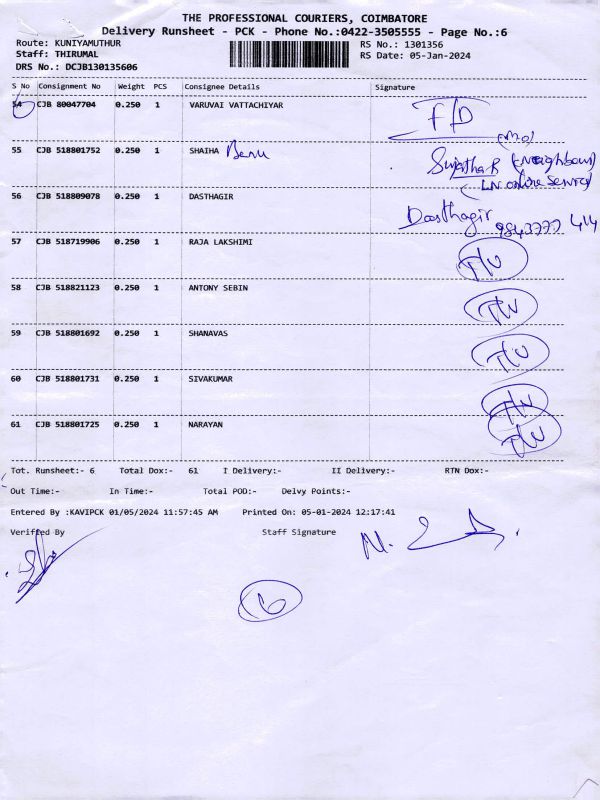 THE PROFESSIONAL COURIERS, COIMBATORE
Delivery Runsheet - PCK - Phone No.:0422-3505555 - Page No.:6
Route: KUNIYAMUTHUR
RS No.: 1301356
Staff: THIRUMAL
RS Date: 05-Jan-2024
DRS No.: DCJB130135606
S No Consignment No Weight PCS Consignee Details Signature
54 CJB 80047704 0.250 1 VARUVAI VATTACHIYAR F/D
55 CJB 518801752 0.250 1 SHAIHA Banu Sujatha R (neighbour)
LN online service
56 CJB 518809078 0.250 1 DASTHAGIR Dasthagir
9843777 414
57 CJB 518719906 0.250 1 RAJA LAKSHIMI
58 CJB 518821123 0.250 1 ANTONY SEBIN
59 CJB 518801692 0.250 1 SHANAVAS
60 CJB 518801731 0.250 1 SIVAKUMAR
61 CJB 518801725 0.250 1 NARAYAN
Tot. Runsheet:- 6 Total Dox:- 61 I Delivery:- II Delivery:- RTN Dox:-
Out Time:- In Time:- Total POD:- Delvy Points:-
Entered By :KAVIPCK 01/05/2024 11:57:45 AM Printed On: 05-01-2024 12:17:41
Veriffed By Staff Signature